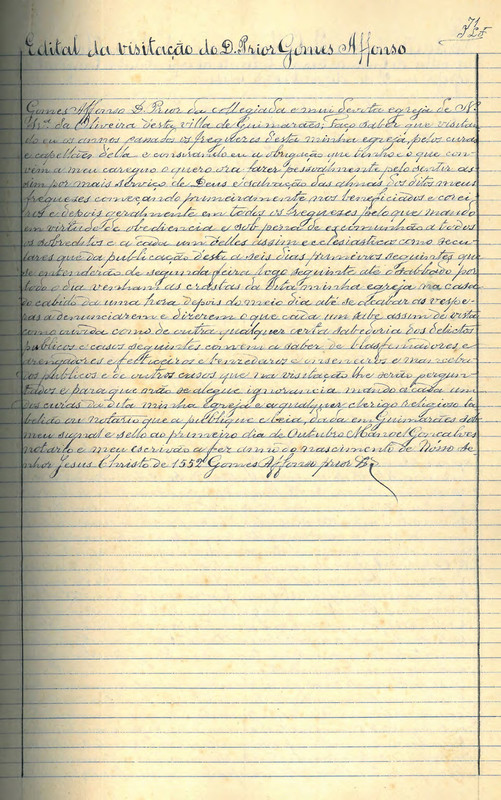 71
Edital da visitação do D. Prior Gomes Affonso
Gomes Affonso D. Prior da collegiada e mui devota egreja de N.ª
Sr.ª da Oliveira desta villa de Guimarães, Faço saber que visitan-
do eu os annos passados freguezes desta minha egreja, pelos curas
e capellães della e considrando eu a obrigação que tinho e o que con-
vem a meu carrego o quero ora fazer pessoalmente pelo sentir as-
sim por mais serviço de Deus e salvação das almas dos ditos meus
freguezes começando primeiramente nos beneficiados e corei-
ros e depois geralmente em todos os freguezes pelo que mando
em virtude de obediencia e sob pena de escomunhão a todos
os sobreditos e a cada um delles assim ecclesiastica como secu-
lares que da publicação desta a seis dias primeiros seguintes que
se entenderão de segunda feira logo seguinte até o sabbado por
todo o dia venham as crastas da dita minha egreja na casa
do cabido da uma hora depois do meio dia até se acabar as vespe-
ras a denunciarem e dizerem o que cada um sube assim de vista
como ouvida como de outra qualquer certa sabedoria dos delictos
publicos e casos seguintes convem a saber de blasfemadores, e
arengadores e feiticeiros e benzedores e onzeneiros e manceba-
dos publicos e de outros casos que na visitação lhe serão pergun-
tados e para que não se alegue ignorancia mando a cada um
dos curas da dita minha egreja e a qualquer clerigo religioso ta-
belião ou notario que a publique e leia, dada em Guimarães sob
meu signal e sello ao primeiro dia de Outubro Manoel Gonçalves
notario e meu escrivão a fez anno do nascimento de Nosso Se-
nhor Jesus Christo de 1552 Gomes Affonso prior